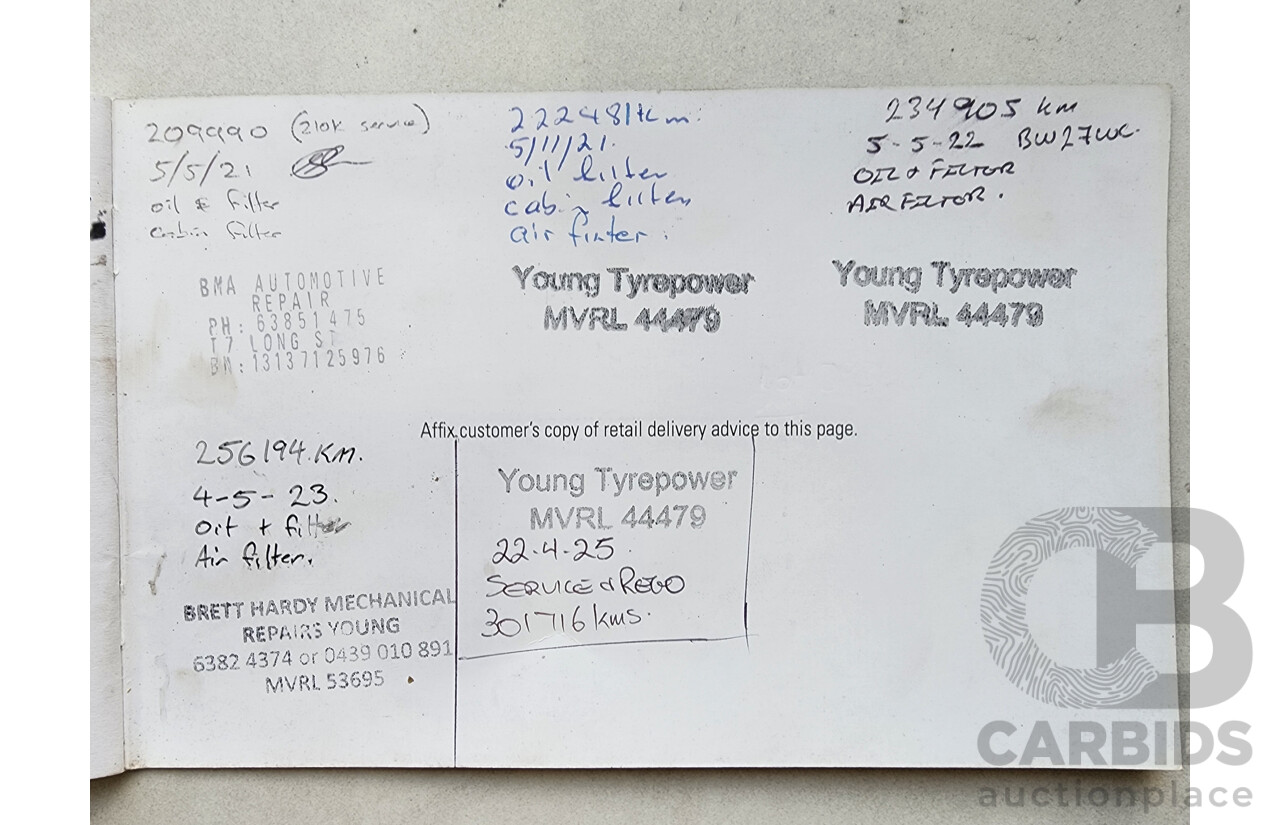 209990 (210k service)
5/5/21
oil & filter
cabin filter
BMA AUTOMOTIVE
REPAIR
PH: 63851475
17 LONG ST
BN:13137125976
222481km.
5/11/21.
oil filter
cabin filter
air filter.
Young Tyrepower
MVRL 44479
234905 km
5-5-22 BW27WC.
OIL & FILTOR
AIR FILTOR.
Young Tyrepower
MVRL 44479
Affix customer's copy of retail delivery advice to this page.
256194 KM.
4-5-23.
Oil + filter
Air filter.
BRETT HARDY MECHANICAL
REPAIRS YOUNG
6382 4374 or 0439 010 891
MVRL 53695
Young Tyrepower
MVRL 44479
22.4.25
SERVICE & REGO
301716 kms.
CB
CARBIDS
auctionplace